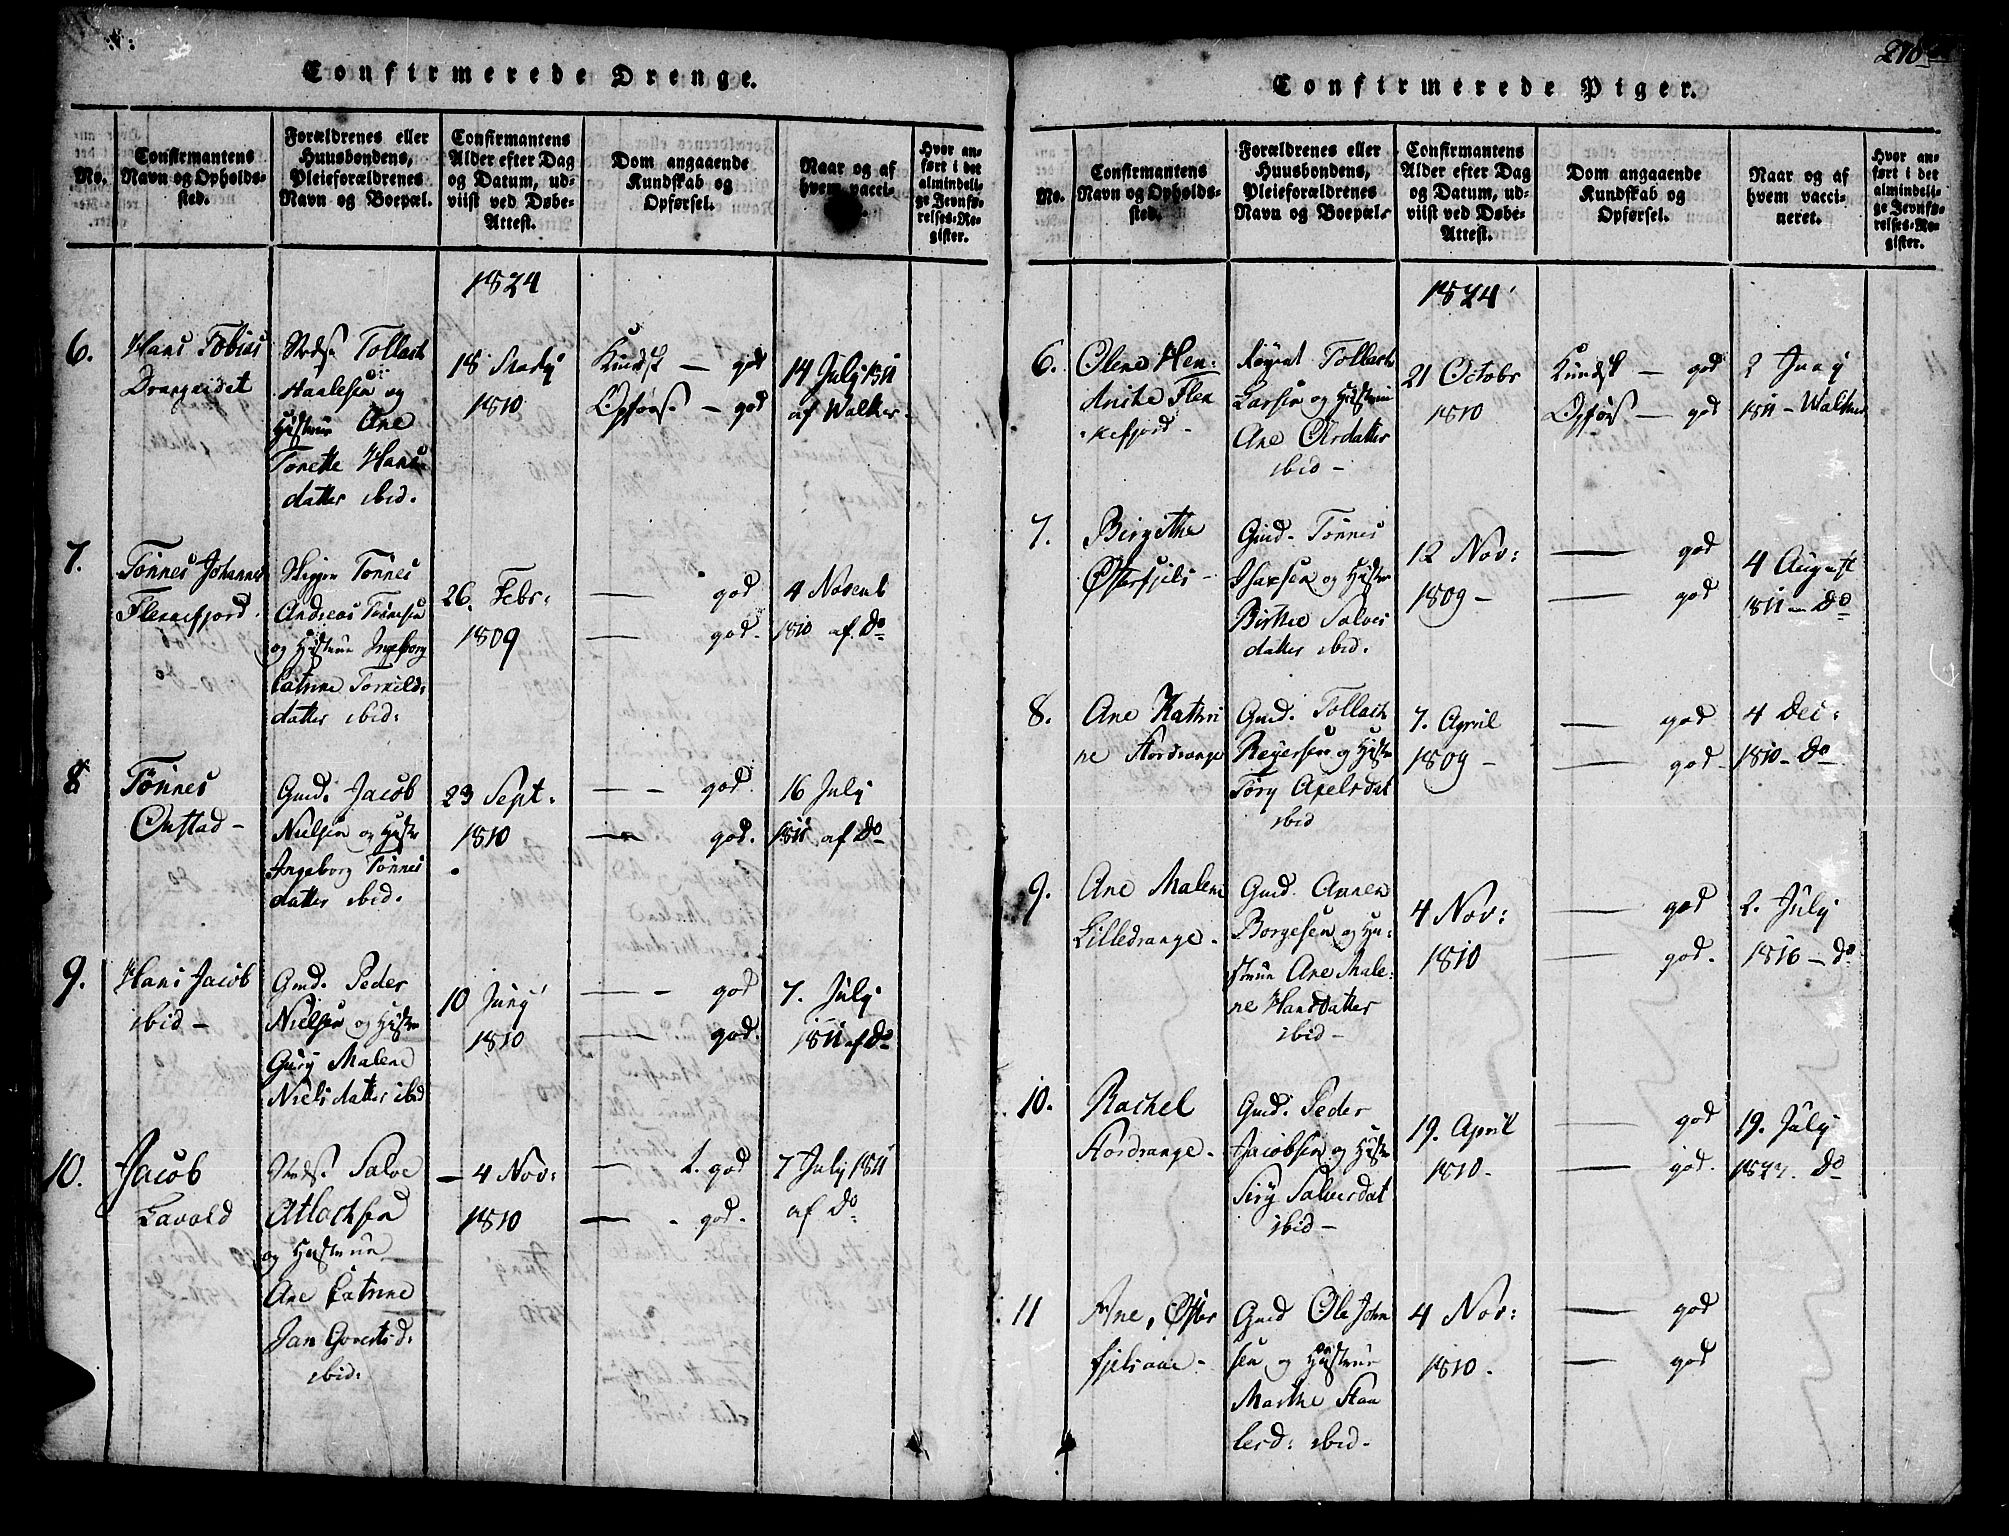 Confirmerede Drenge.
No.
Confirmantens Navn og Opholds-sted.
Forældrenes eller Huusbondens, Pleieforældrenes Navn og Boepæl.
Confirmantens Alder efter Dag og Datum, ud-viist ved Døbe-Attest.
Dom angaaende Kundskab og Opførsel.
Naar og af hvem vacci-
Hvor an-ført i det almindeli-ge Jevnfø-relses-Re-gister.
1824
6.
Hans Tobias
Drangeidet
Tollach
Haalesen og
Hustrue Ane
Tonette Hans
datter ibid.
18
1810
Kundsk — god
Opførs — god
14 July 1811
af Walker
7.
Tønnes Johannes
Flekkefjord.
Tønnes
Andreas Tønnesen
og Hustrue Ingeborg
Catrine Torkilds
datter ibid:
26. Febr:
1809
— god
— god.
4 Novemb
1810 af Do
8
Tønnes
Onstad -
Gmd. Jacob
Nielsen og Hustr
Ingeborg Tønnes
datter ibid.
23 Sept.
1810
— - god.
— god.
16 July
1811 af Do
9.
Hans Jacob
ibid -
Gmd. Peder
Nielsen og Hustr
Gury Malene
Nielsdatter ibid
10 Juny
1810
— - god
— god.
7. July
1811 af Do
10.
Jacob
Lavold
Salve
Atlachsen
og Hustrue
Ane Catrine
Jan Govertsd:
ibid.
- 4 Nov:
1810
— t. god
— - god.
7 July 1811
af Do
270
Confirmerede Piger.
No.
Confirmantens Navn og Opholds-sted.
Forældrenes eller Huusbondens, Pleieforældrenes Navn og Boepæl
Confirmantens Alder efter Dag og Datum, ud-viist ved Døbe-Attest.
Dom angaaende Kundskab og Opførsel.
Naar og af hvem vacci-neret.
Hvor an-ført i det almindeli-ge Jevnfø-relses-Re-gister.
1824
6.
Olene Hen:
Anike Flek
kefjord -
Tollach
Larsen og Hustrue
Ane Olsdatter
ibid -
21 Octobr
1810
Kundsk — god
Opførs — god
2 Juny
1811 - Walker
7.
Birgithe
Østerfjels -
Gmd. Tønnes
Isaxsen og Hustr
Birthe Salves
datter ibid.
12 Nov:
1809 -
— god
— god
4 August
1811 - Do
8.
Ane Kathri
ne Stordrange
Gmd. Tollach
Reyersen og Hustr
Tory Axelsdat
ibid
7. April
1809 -
— god
— god -
4 Dec:
1810 - Do
9.
Ane Malene
Lilledrange -
Gmd. Aanen
Borgesen og Hu:
strue Ane Male:
ne Hansdatter
ibid -
4 Nov:
1810
— god
— god.
2. July
1816 - Do
10.
Rachel
Stordrange -
Gmd. Peder
Jacobsen og Hustr
Siry Salvesdat
ibid -
19. April
1810 -
— god
— god.
19. July
Do
11
Ane, Øster
fjels
Gmd Ole John
sen og Hustrue
Marthe Staa
lesd: ibid -
4 Nov:
1810 -
— god
— god